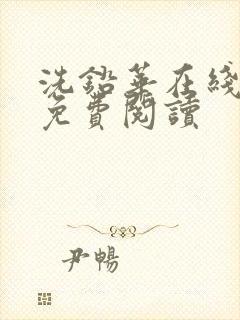 洗鉛華在綫
免費閱讀
尹暢